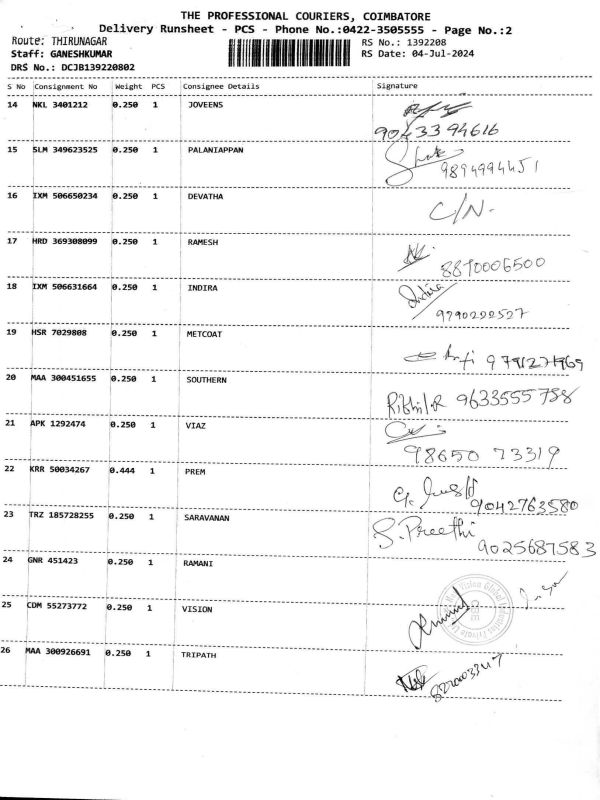 THE PROFESSIONAL COURIERS, COIMBATORE
Delivery Runsheet - PCS - Phone No.:0422-3505555 - Page No.:2
Route: THIRUNAGAR RS No.: 1392208
Staff: GANESHKUMAR RS Date: 04-Jul-2024
DRS No.: DCJB139220802
S No Consignment No Weight PCS Consignee Details Signature
14 NKL 3401212 0.250 1 JOVEENS
9043394616
15 SLM 349623525 0.250 1 PALANIAPPAN
9894994451
16 IXM 506650234 0.250 1 DEVATHA
C/N.
17 HRD 369308099 0.250 1 RAMESH
8870006500
18 IXM 506631664 0.250 1 INDIRA Indira
9790222527
19 HSR 7029808 0.250 1 METCOAT
9791271969
20 MAA 300451655 0.250 1 SOUTHERN
9633555758
21 APK 1292474 0.250 1 VIAZ
98650 73319
22 KRR 50034267 0.444 1 PREM
9042763580
23 TRZ 185728255 0.250 1 SARAVANAN S. Preethi
9025687583
24 GNR 451423 0.250 1 RAMANI
25 CDM 55273772 0.250 1 VISION
Vision Global
26 MAA 300926691 0.250 1 TRIPATH